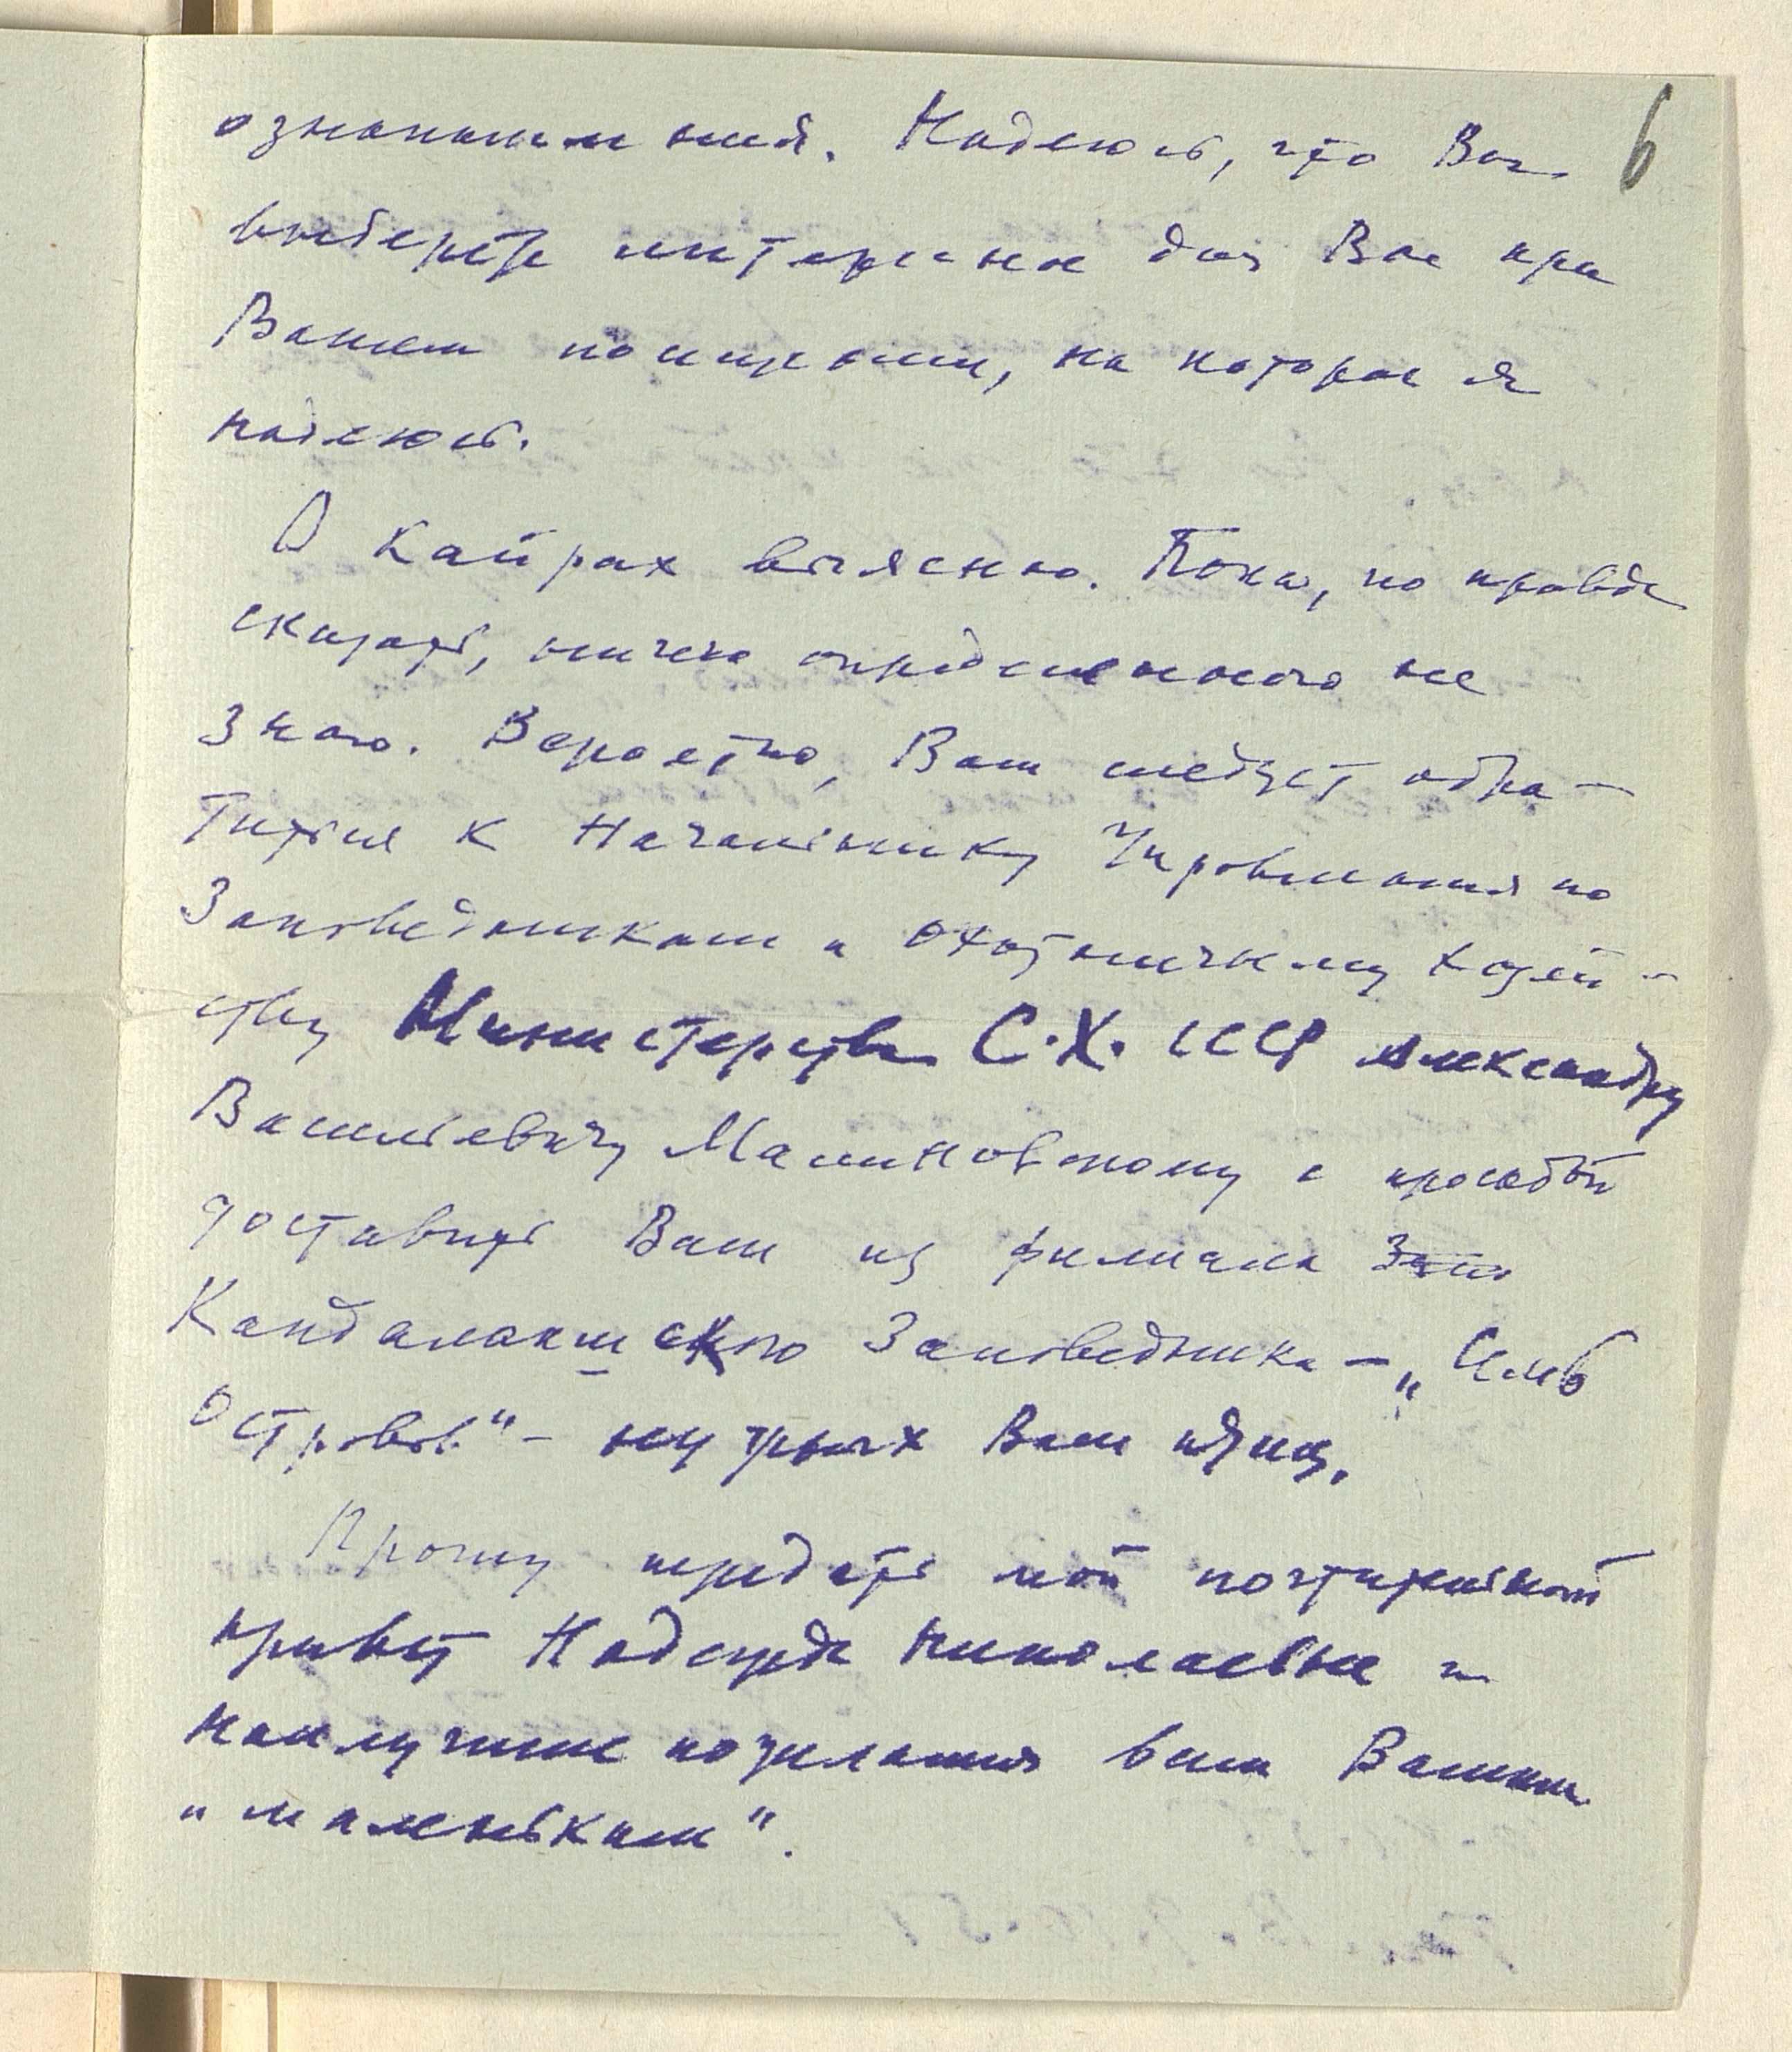 ознакомления. Надеюсь, что Вы 6
выберете интересное для Вас при
Вашем посещении, на которое я
надеюсь.
О Кайрах выясню. Пока, по правде
сказать, ничего определенного не
знаю. Вероятно, Вам следует обра-
титься к Начальнику Управления по
Заповедникам и охотничьему хозяй-
ству Министерства С.Х. СССР Александру
Васильевичу Малиновскому с просьбой
доставить Вам из филиала
Кандалакшского Заповедника - „Семь
Островов" - нужных Вам яиц.
Прошу передать мой почтительный
привет Надежде Николаевне и
наилучшие пожелания всем Вашим
„маленьким".